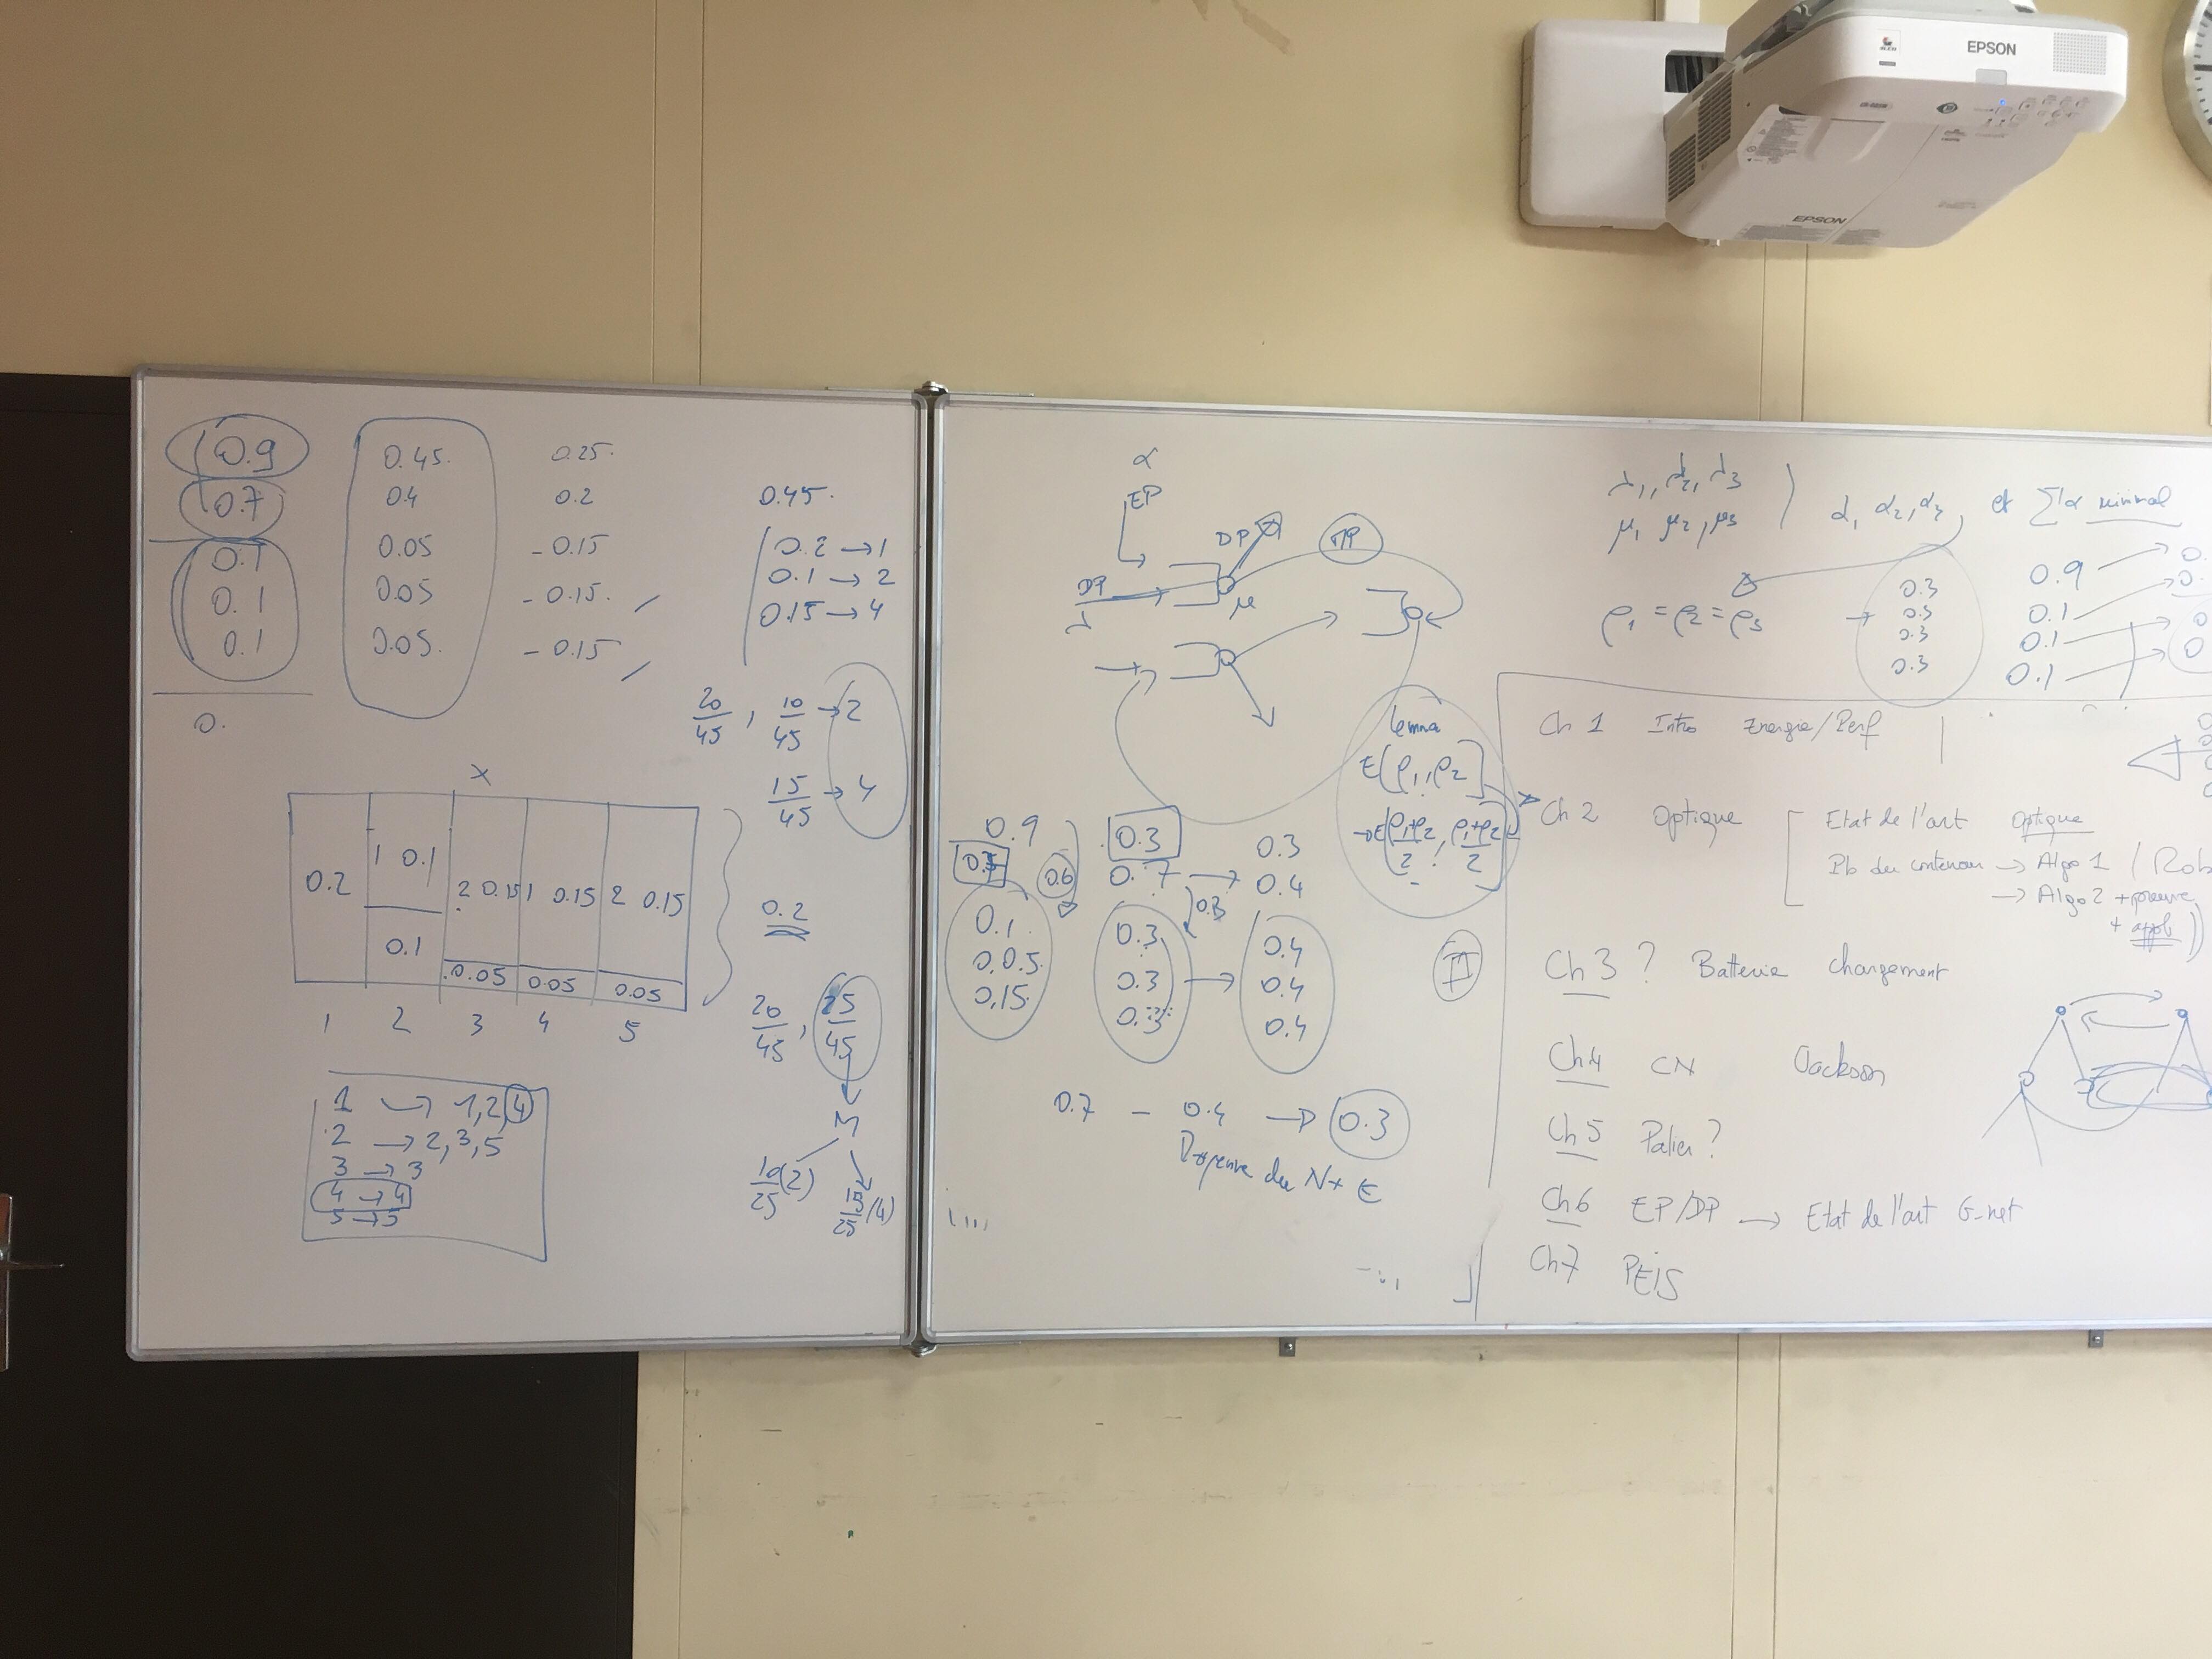 EPSON
EPSON
0.9 0.45 0.25
0.7 0.4 0.2
0.1 0.05 - 0.15
0.1 0.05 - 0.15
0.1 0.05 - 0.15
0.
0.45
0.2 → 1
0.1 → 2
0.15 → 4
20/45 , 10/45 → 2
15/45 → 4
x
0.2 1 0.1 2 0.15 1 0.15 2 0.15
0.1 0.05 0.05 0.05
1 2 3 4 5
0.2
20/45 , 25/45
10/25 (2) 15/25 (4)
1 → 1,2,4
2 → 2,3,5
3 → 3
4 → 4
5 → 5
α
EP
DP
DP
λ
μ
lemna
E(ρ1,ρ2)
→ E(ρ1+ρ2/2, ρ1+ρ2/2)
0.9 0.3 0.3
0.6 0.7 → 0.4
0.3
0.1 0.3 0.4
0.05 0.3 → 0.4
0.15 0.3 0.4
0.7 - 0.4 → 0.3
II
λ1, λ2, λ3
μ1 μ2, μ3
α1 α2, α3, et Σα minimal
ρ1 = ρ2 = ρ3 →
0.3
0.3
0.3
0.3
0.9 →
0.1 →
0.1 →
0.1 →
Ch 1 Intro Energie/Perf
Ch 2 Optique
Etat de l'art Optique
Pb du conteneur → Algo 1
→ Algo 2 + preuve
+ appli
Ch 3 ? Batterie chargement
Ch 4 CN Jackson
Ch 5 Palier ?
Ch 6 EP/DP → Etat de l'art G-net
Ch 7